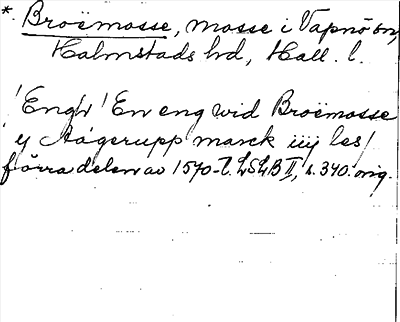 * Broëmosse, mosse i Vapnö sn,
Halmstads hd, Hall. l.
'Engh' En eng wid Broëmosse
ij Aágerupp marck iiij les/
förra delen av 1570-t. LSLB II, s. 340. orig.